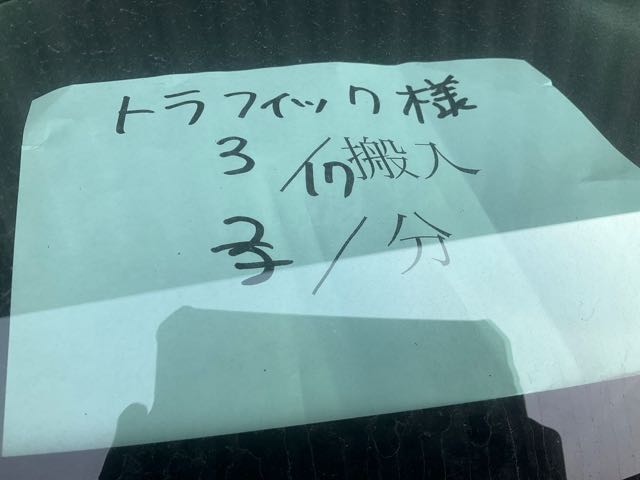 トラフィック様
3/17搬入
/分